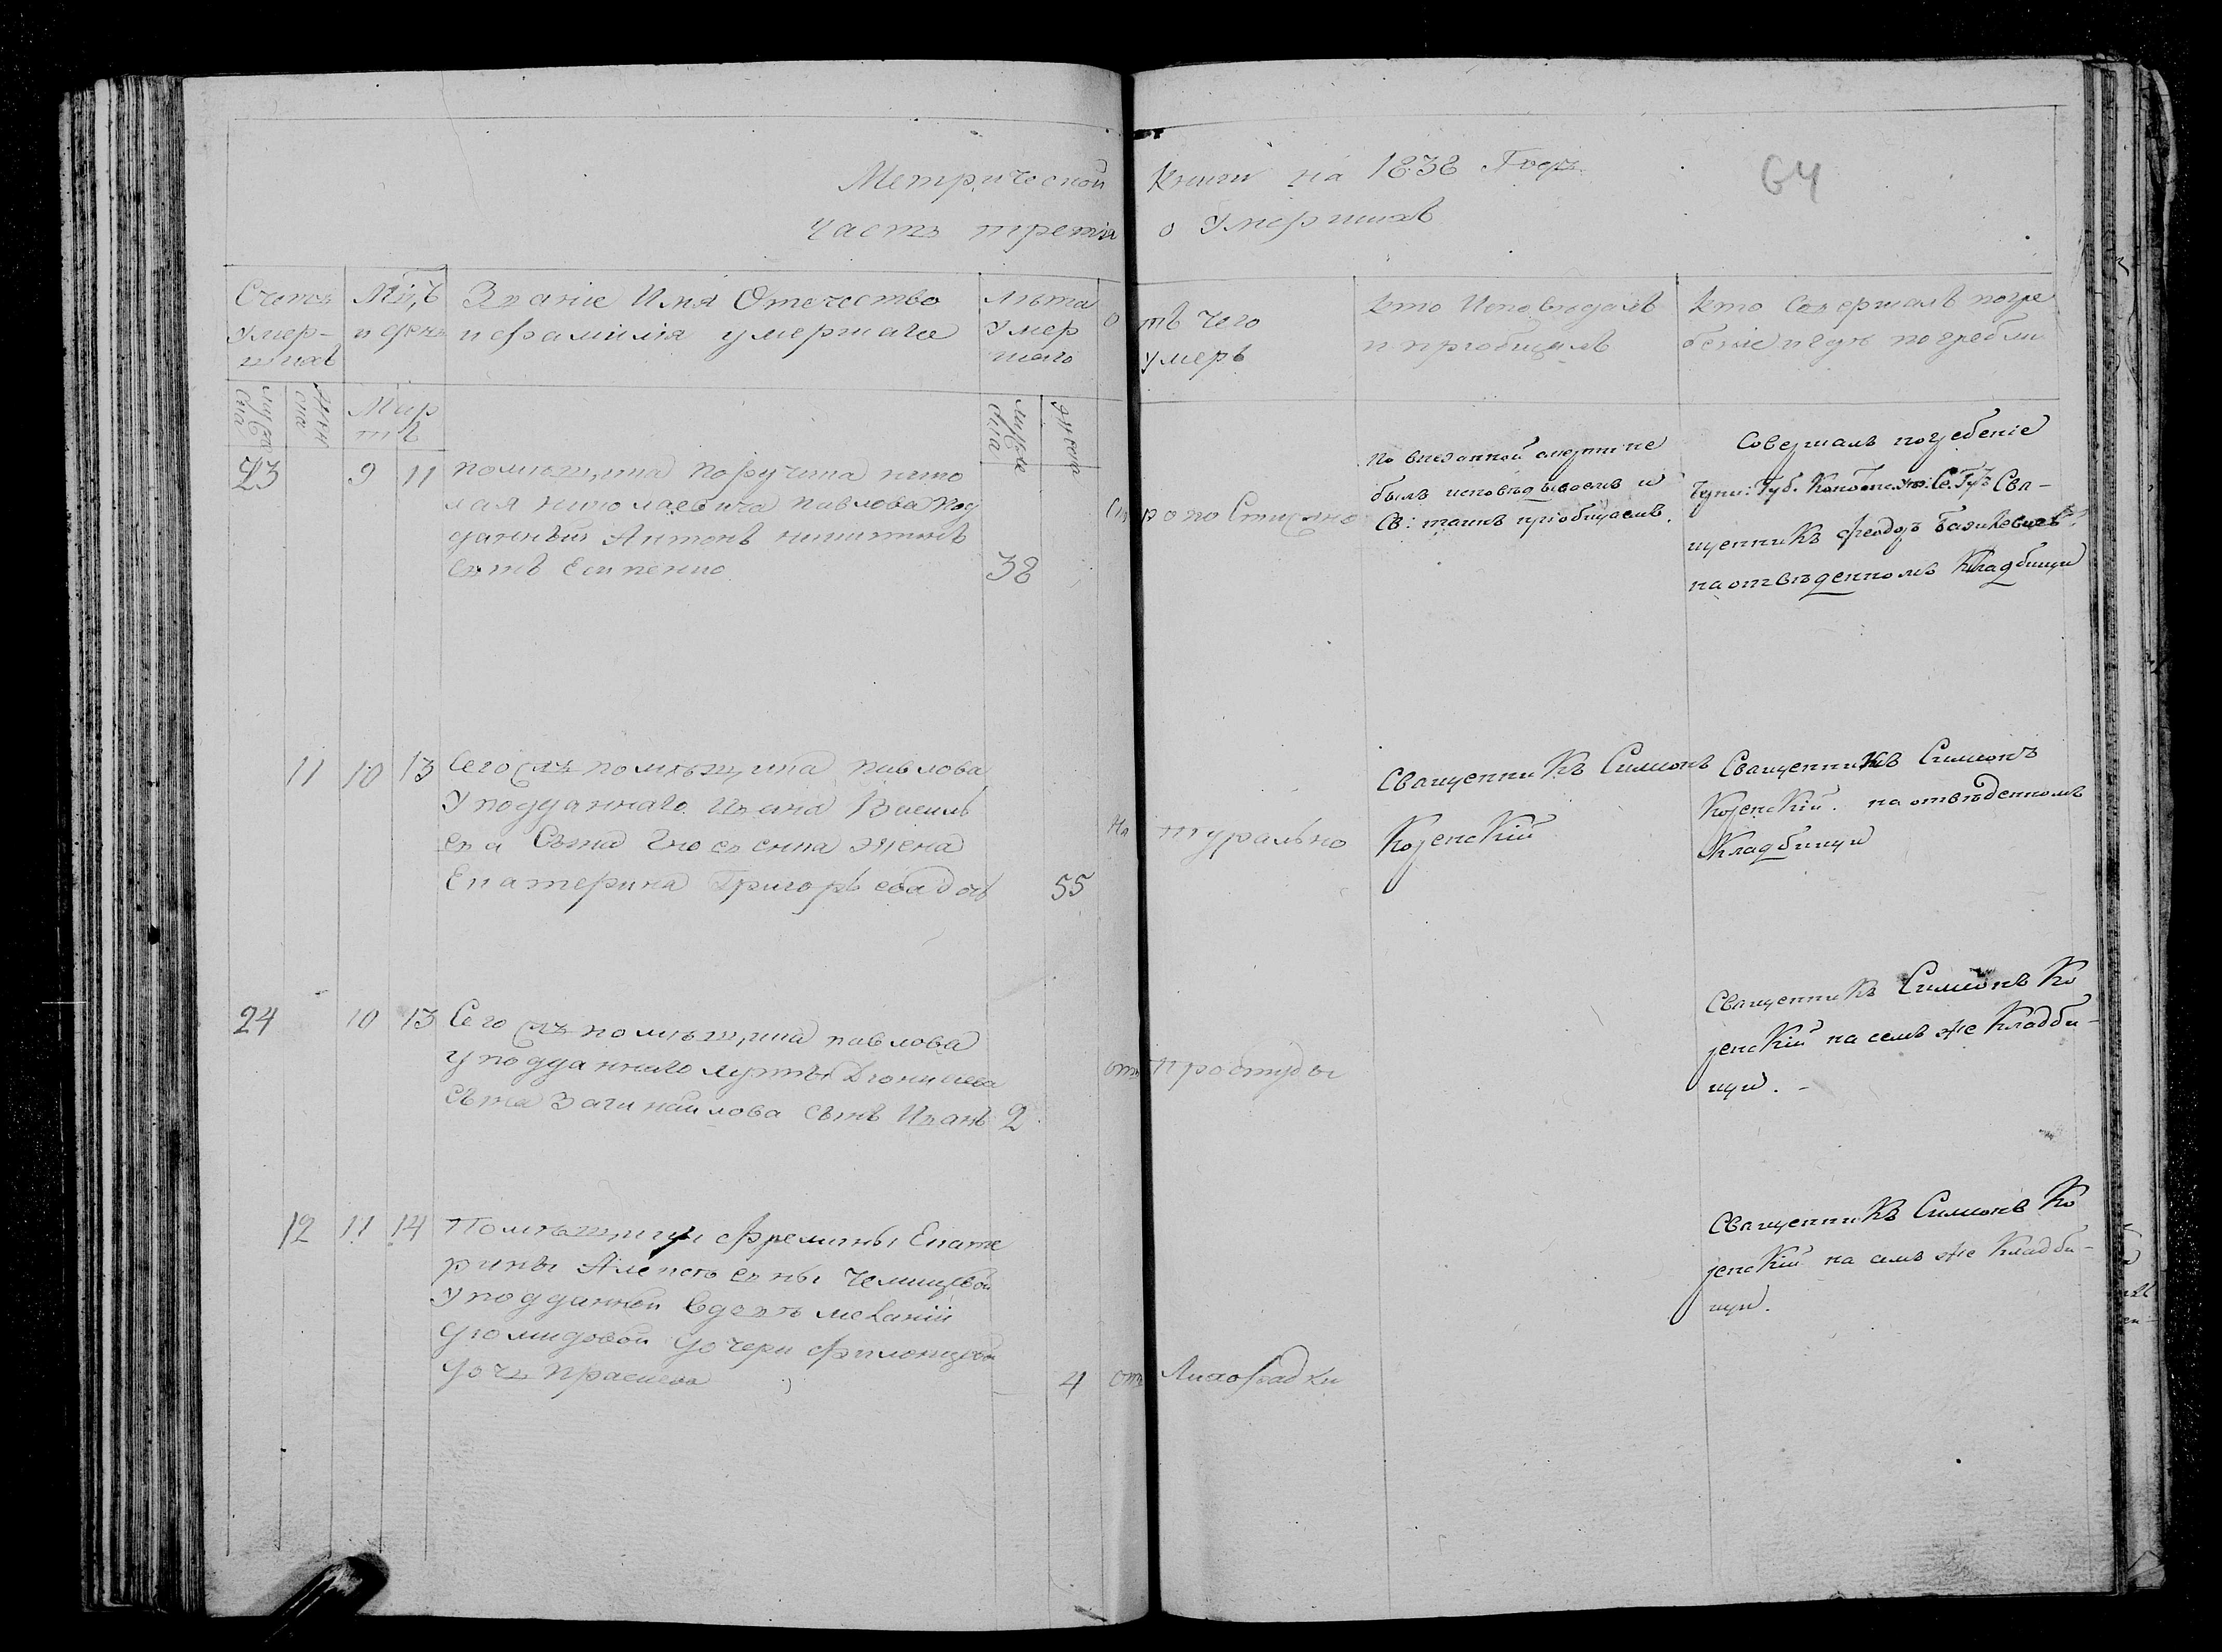 Метрической Книги на 1838 Годъ.
64
Часть третія о Умершихъ
Счетъ
Умер-
шихъ
Мц,ъ
и день
Званіе Имя Отечество
и фамилія умершаго
Лѣта
Умер
шаго
отъ чего
умеръ
Кто Исповѣдалъ
и пріобщалъ
Кто Совершалъ погре
беніе и гдѣ погребли
муже
ска
жен
ска
Мар
тъ
муже
ска
женска
23
9
11
помѣщика поручика нико
лая николаевича павлова под
данный Антонъ никитинъ
сынъ Есипенко
38
Скоропостижно
По внезапной смерти не
былъ исповѣдываемъ и
Св: таинъ пріобщаемъ.
Совершалъ погребеніе
Губ.
Свя-
щенникъ Феодоръ
на отвѣденномъ Кладбищи
11
10
13
Сего жъ помѣщика павлова
Уподданнаго Ивана Василь
ева Сына жена
Екатерина Григорьева дочь
55
Натурально
Священникъ Симонъ
Козенскій
Священникъ Симонъ
Козенскій. на отвѣденномъ
Кладбищи
24
10
13
Сего жъ помѣщика павлова
уподданнаго лукты Діонисіева
Сына Загинайлова сынъ Иванъ
2
отъ простуды
Священникъ Симонъ Ко
зенскій на семъ же Кладби-
щи. -
12
11
14
Помѣщицы фремины Екате
рины Алексѣевны Челищевой
Уподданной вдовѣ меланіи
діомидовой дочери филонцевой
дочь праскева
4
отъ Лихорадки
Священникъ Симонъ Ко
зенскій на семъ же Кладби-
щи.